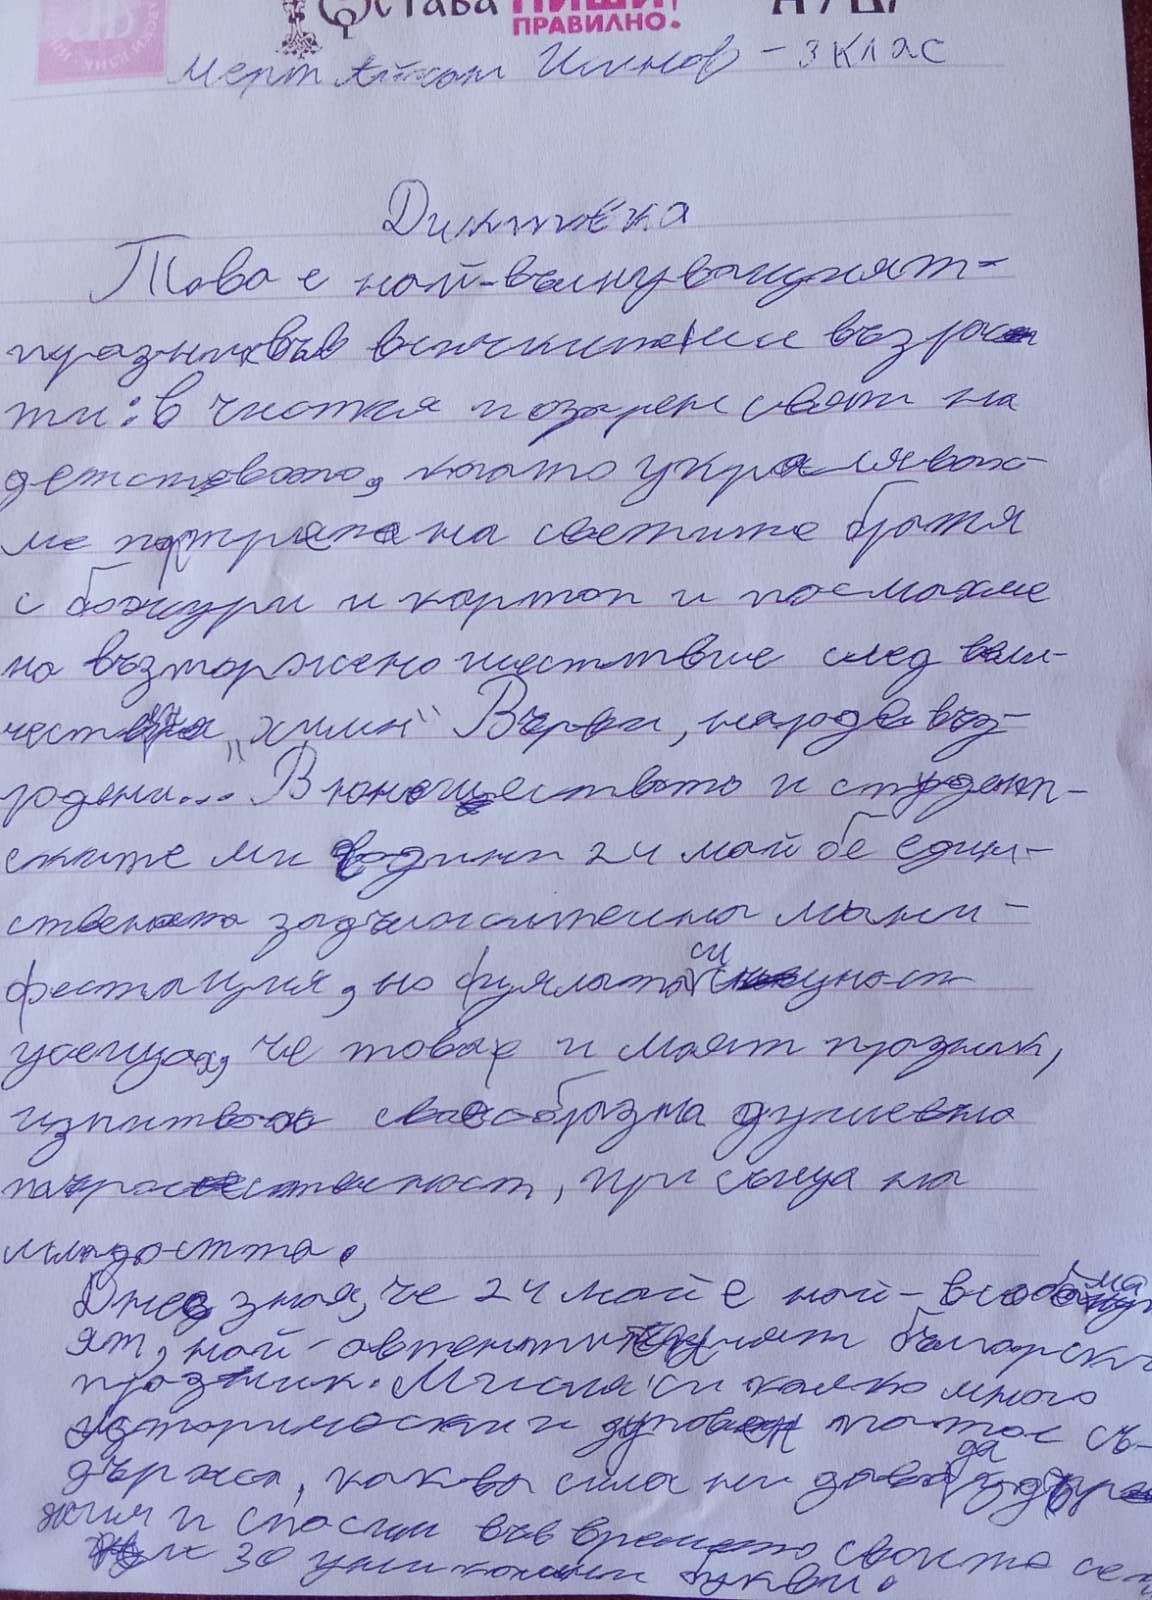 ПИШИ
ПРАВИЛНО.
Мерт - 3 клас
Диктовка
Това е най-вълнуващият
празник във всичките ми възрас
ти: в чистия и озарен свят на
детството, когато украсявах-
ме портрета на светите братя
с божури и картон и поемахме
на възторжено шествие след вели-
чествения "химн" Върви, народе въз-
родени... В юношеството и студент-
ските ми години 24 май бе един-
ствената задължителна мани-
фестация, но с цялата си същност
усещах, че това е и моят празник,
изпитвах своеобразна душевна
тържественост, присъща на
младостта.
Днес зная, че 24 май е най-
ят, най-автентичният български
празник. Мисля си колко много
исторически и духовен патос съ-
държа, каква сила ни дава да
жим и спасим във времето своите се
30 уникални букви.